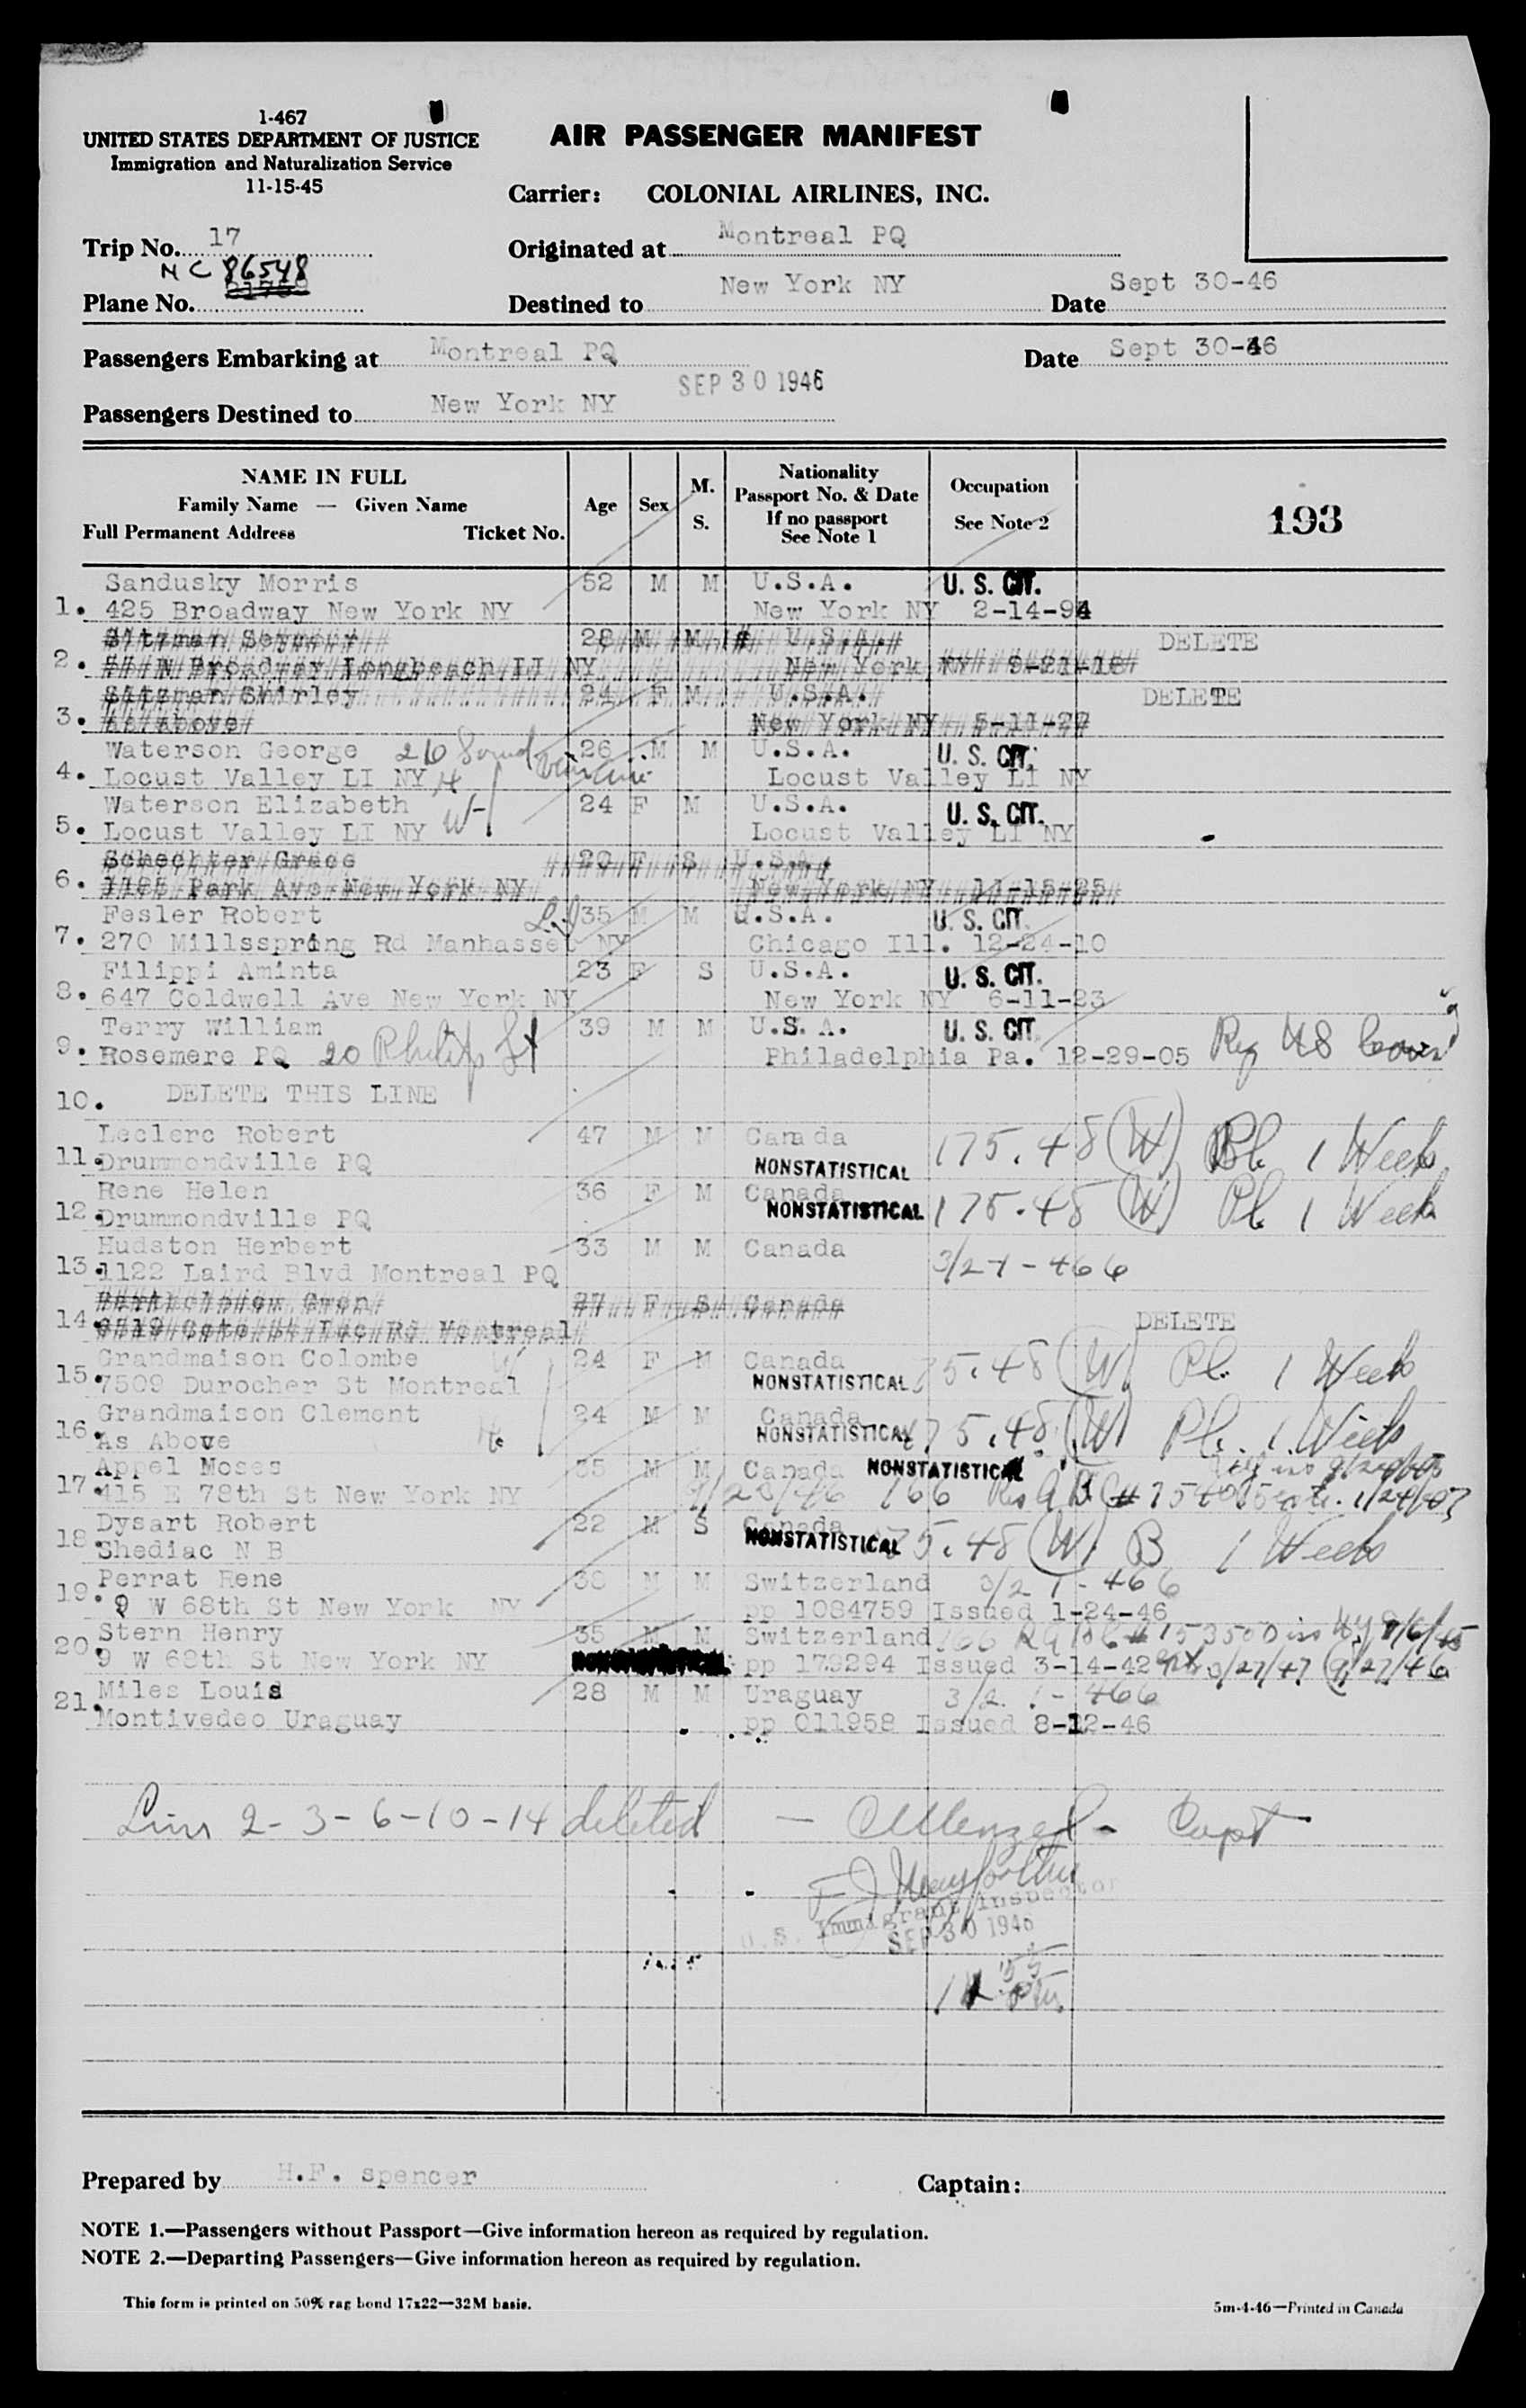 1-467
UNITED STATES DEPARTMENT OF JUSTICE
Immigration and Naturalization Service
11-15-45
AIR PASSENGER MANIFEST
Carrier: COLONIAL AIRLINES, INC.
Trip No. 17
Originated at Montreal PQ
NC 86548
Plane No.
Destined to New York NY
Date Sept 30-46
Passengers Embarking at Montreal PQ
Date Sept 30-46
SEP 30 1946
Passengers Destined to New York NY
NAME IN FULL
Family Name — Given Name
Full Permanent Address Ticket No.
Age Sex M. S.
Nationality
Passport No. & Date
If no passport
See Note 1
Occupation
See Note 2
193
Sandusky Morris 52 M M U.S.A. U. S. CIT.
1. 425 Broadway New York NY New York NY 2-14-94
Sitzman Seymour 28 M M U.S.A. DELETE
2. W Broadway Longbeach LI NY New York NY 9-21-18
Sitzman Shirley 24 F M U.S.A. DELETE
3. As above New York NY 5-11-22
Waterson George 26 M M U.S.A. U. S. CIT.
4. Locust Valley LI NY H Locust Valley LI NY
Waterson Elizabeth 24 F M U.S.A. U. S. CIT.
5. Locust Valley LI NY W Locust Valley LI NY
Schechter Grace 20 F S U.S.A.
6. 1185 Park Ave New York NY New York NY 11-15-25
Fesler Robert 35 M M U.S.A. U. S. CIT.
7. 270 Millsspring Rd Manhasset NY Chicago Ill. 12-24-10
Filippi Aminta 23 F S U.S.A. U. S. CIT.
8. 647 Coldwell Ave New York NY New York NY 6-11-23
Terry William 39 M M U.S. A. U. S. CIT.
9. Rosemere PQ 20 Philips St Philadelphia Pa. 12-29-05 Reg US
10. DELETE THIS LINE
Leclerc Robert 47 M M Canada 175.48 (W) Pl. 1 Week
11. Drummondville PQ NONSTATISTICAL
Rene Helen 36 F M Canada
12. Drummondville PQ NONSTATISTICAL 175.48 (W) Pl. 1 Week
Hudston Herbert 33 M M Canada
13. 1122 Laird Blvd Montreal PQ 3/21-466
Bartholomew Gwen 27 F S Canada
14. Cote St Luc Rd Montreal DELETE
Grandmaison Colombe W 24 F M Canada 175.48 (W) Pl. 1 Week
15. 7509 Durocher St Montreal NONSTATISTICAL
Grandmaison Clement 24 M M Canada
16. As Above H NONSTATISTICAL 175.48 (W) Pl. 1 Week
Appel Moses 35 M M Canada NONSTATISTICAL
17. 415 E 78th St New York NY 166
Dysart Robert 22 M S Canada
18. Shediac N B NONSTATISTICAL 175.48 (W) B 1 Week
Perrat Rene 38 M M Switzerland 3/21-466
19. 9 W 68th St New York NY pp 1084759 Issued 1-24-46
Stern Henry 35 M M Switzerland 166
20. 9 W 68th St New York NY pp 179294 Issued 3-14-42
Miles Louis 28 M M Uraguay 3/2.1-466
21. Montivedeo Uraguay pp 011958 Issued 8-12-46
Lines 2-3-6-10-14 deleted — Menzel - Capt
U. S. Immigrant Inspector
SEP 30 1946
Prepared by H.F. spencer
Captain:
NOTE 1.—Passengers without Passport—Give information hereon as required by regulation.
NOTE 2.—Departing Passengers—Give information hereon as required by regulation.
This form is printed on 50% rag bond 17x22—32M basis.
5m-4-46—Printed in Canada